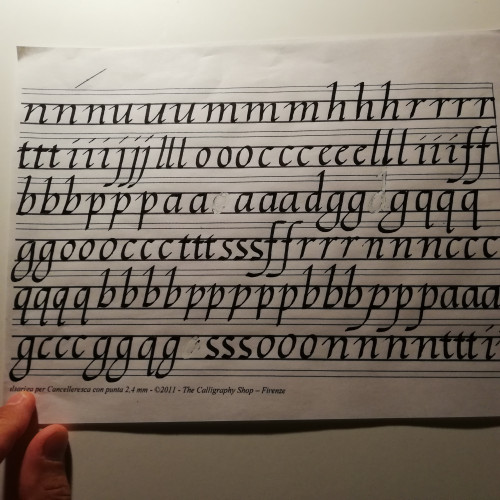 nnnuuummmhhhrrrr
tttiiijjjllloooccceeellliiiff
bbbpppaa aaadgg gqqq
ggooocccttt sssffrrrnnnccc
qqqqbbbbpppppbbbpppaaa
gcccggqg sssooonnnnnttti
per Cancelleresca con punta 2.4 mm - ©2011 - The Calligraphy Shop – Firenze